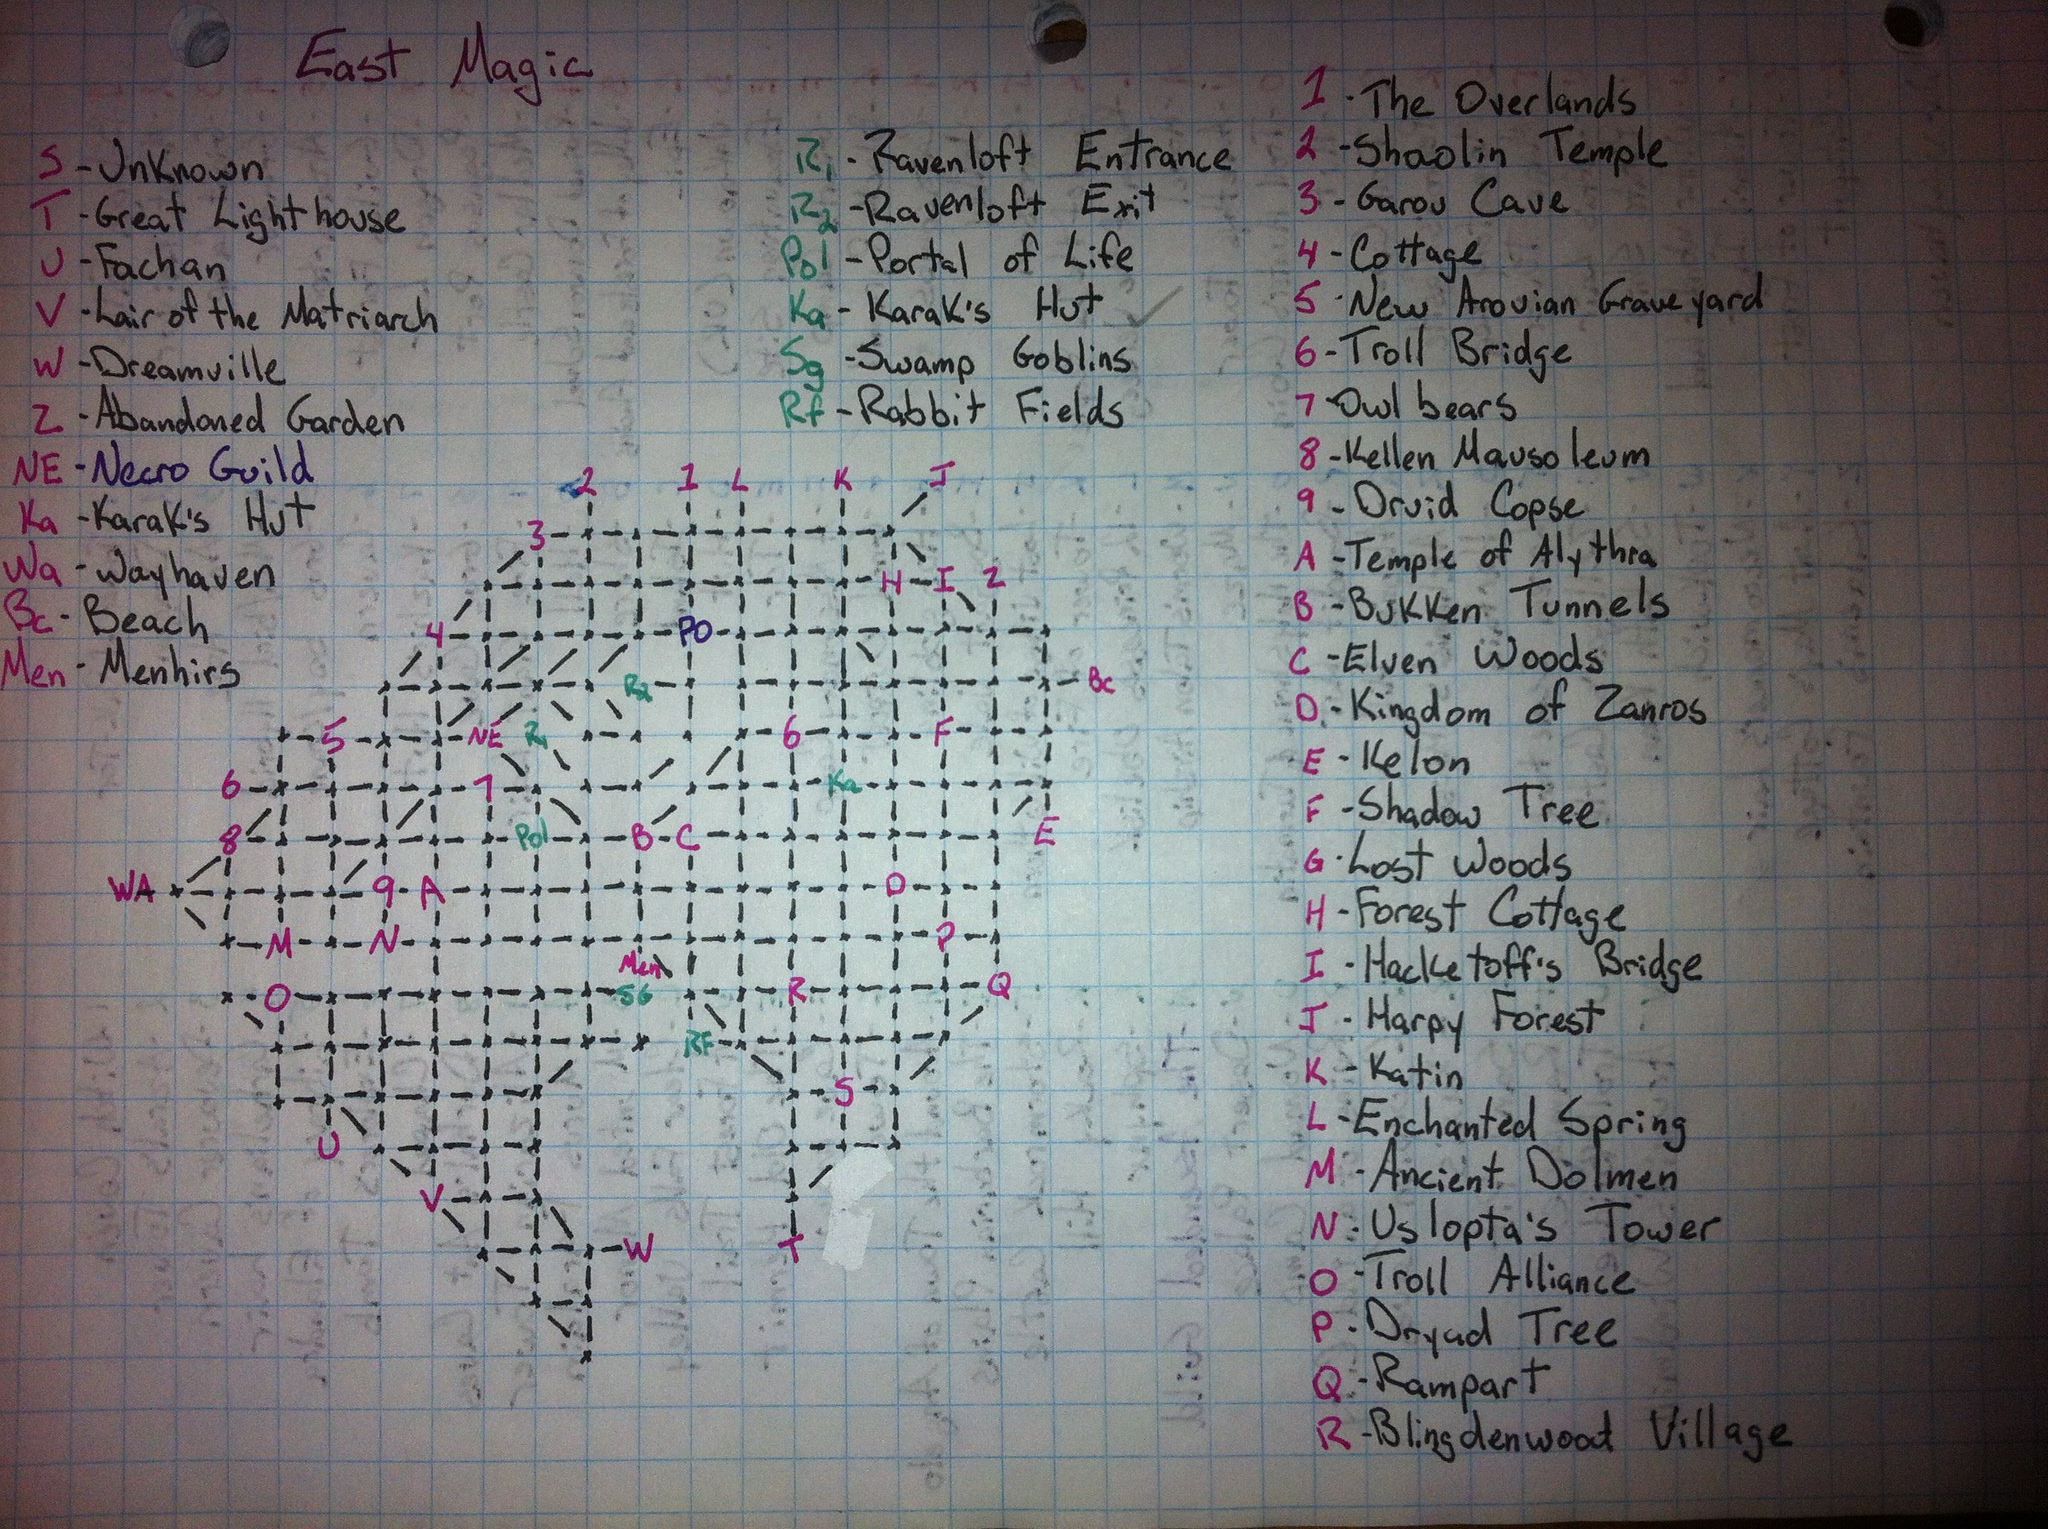 East Magic
S - Unknown
T - Great Lighthouse
U - Fachan
V - Lair of the Matriarch
W - Dreamville
Z - Abandoned Garden
NE - Necro Guild
Ka - Karak's Hut
Wa - Wayhaven
Bc - Beach
Men - Menhirs
R1 - Ravenloft Entrance
R2 - Ravenloft Exit
Pol - Portal of Life
Ka - Karak's Hut ✓
Sg - Swamp Goblins
Rf - Rabbit Fields
1 - The Overlands
2 - Shaolin Temple
3 - Garou Cave
4 - Cottage
5 - New Arovian Graveyard
6 - Troll Bridge
7 Owlbears
8 - Kellen Mausoleum
9 - Druid Copse
A - Temple of Alythra
B - Bukken Tunnels
C - Elven Woods
D - Kingdom of Zanros
E - Kelon
F - Shadow Tree
G - Lost Woods
H - Forest Cottage
I - Hacketoff's Bridge
J - Harpy Forest
K - Katin
L - Enchanted Spring
M - Ancient Dolmen
N - Uslopta's Tower
O - Troll Alliance
P - Dryad Tree
Q - Rampart
R - Blingdenwood Village
2 1 L K J
3
H I Z
4 PO
R2 Bc
5 NE R1 6 F
6 7 Ka
8 Pol B C E
WA 9 A D
M N P
Men
O SG R Q
RF
S
U
V
W T